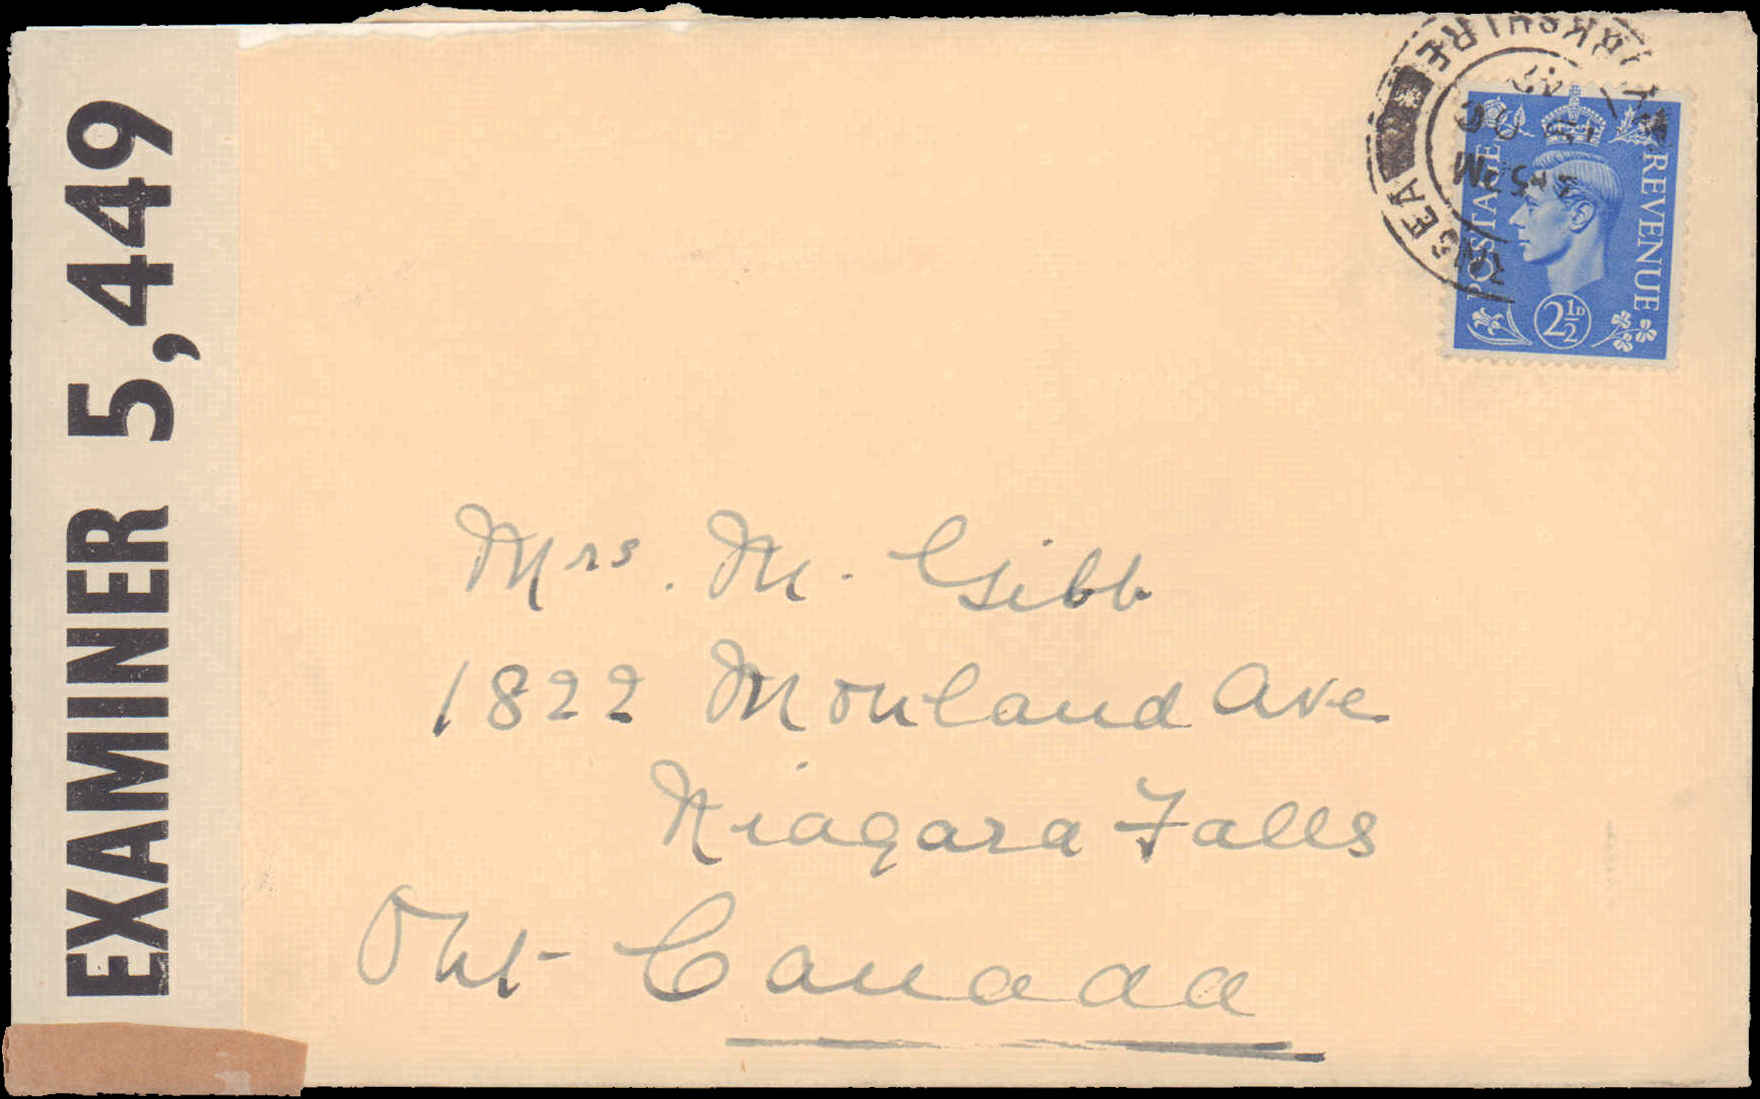 EXAMINER 5,449
POSTAGE REVENUE
2½D
Mrs. M. Gibb
1822 Monland Ave
Niagara Falls
Ont- Canada